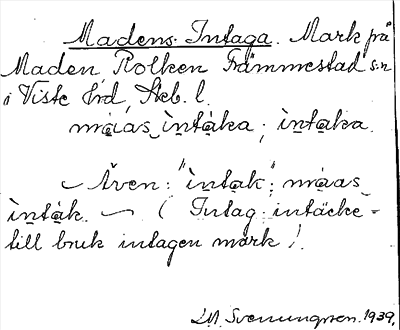 Madens Intaga. Mark på
Maden, Rolken Främmestad s:n
i Viste hrd, Skb. l.
måas ìntàka; ìntàka.
~ Även: "ìntàk"; måas
ìntàk. ~ (Intag: intäcke =
till bruk intagen mark).
Svenungsson. 1939.